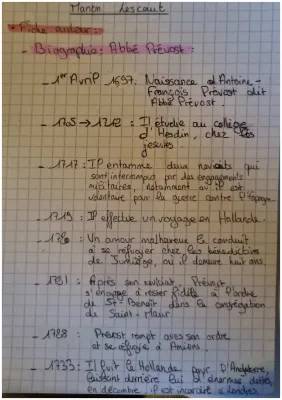 Manon Lescaut
• Fiche auteur :
- Biographie : Abbé Prévost
- 1er Avril 1697. Naissance d'Antoine-
François Prévost dit
Abbé Prévost.
: Il étudie au collège
d'Hesdin, chez les
jésuites
- 1717 : Il entame deux noviciats qui
sont interrompus par des engagements
militaires, notamment où il est
volontaire pour la guerre contre l'Espagne.
- 1719 : Il effectue un voyage en Hollande.
Un amour malheureux le conduit
à se réfugier chez les bénédictins
de Jumièges, où il demeure huit ans.
Après son noviciat, Prévost
s'engage à rester fidèle à l'ordre
de St-Benoît dans la congrégation
de Saint-Maur.
Prévost rompt avec son ordre
et se réfugie à Amiens.
- 1733 : Il fuit la Hollande pour l'Angleterre,
laissant derrière lui d'énormes dettes,
en décembre, il est incarcéré à Londres.